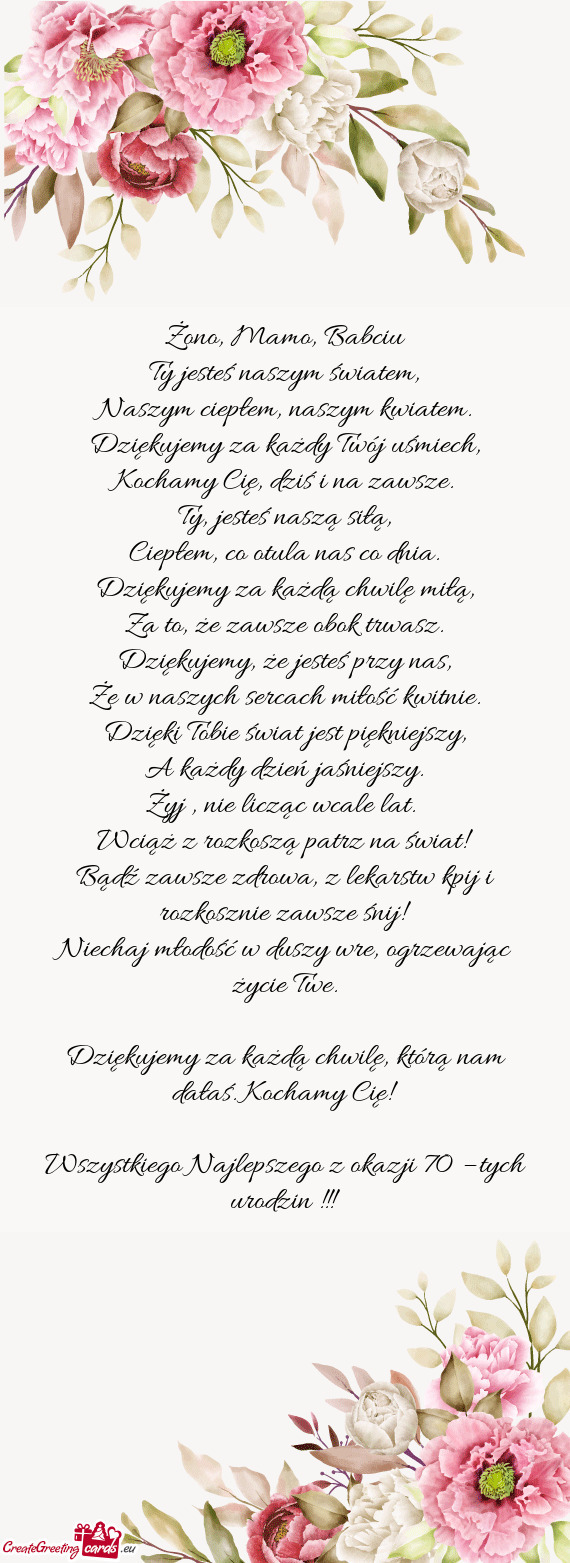 Żono, Mamo, Babciu
Ty jesteś naszym światem,
Naszym ciepłem, naszym kwiatem.
Dziękujemy za każdy Twój uśmiech,
Kochamy Cię, dziś i na zawsze.
Ty, jesteś naszą siłą,
Ciepłem, co otula nas co dnia.
Dziękujemy za każdą chwilę miłą,
Za to, że zawsze obok trwasz.
Dziękujemy, że jesteś przy nas,
Że w naszych sercach miłość kwitnie.
Dzięki Tobie świat jest piękniejszy,
A każdy dzień jaśniejszy.
Żyj , nie licząc wcale lat.
Wciąż z rozkoszą patrz na świat!
Bądź zawsze zdrowa, z lekarstw kpij i
rozkosznie zawsze śnij!
Niechaj młodość w duszy wre, ogrzewając
życie Twe.
Dziękujemy za każdą chwilę, którą nam
dałaś. Kochamy Cię!
Wszystkiego Najlepszego z okazji 70 –tych
urodzin !!!
CreateGreeting cards .eu